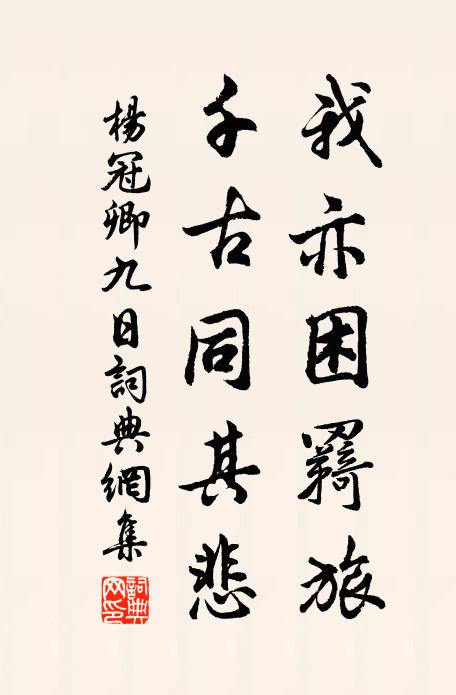 我亦困羇旅
千古同其悲
楊冠卿九日詞典網集
詞典
网印